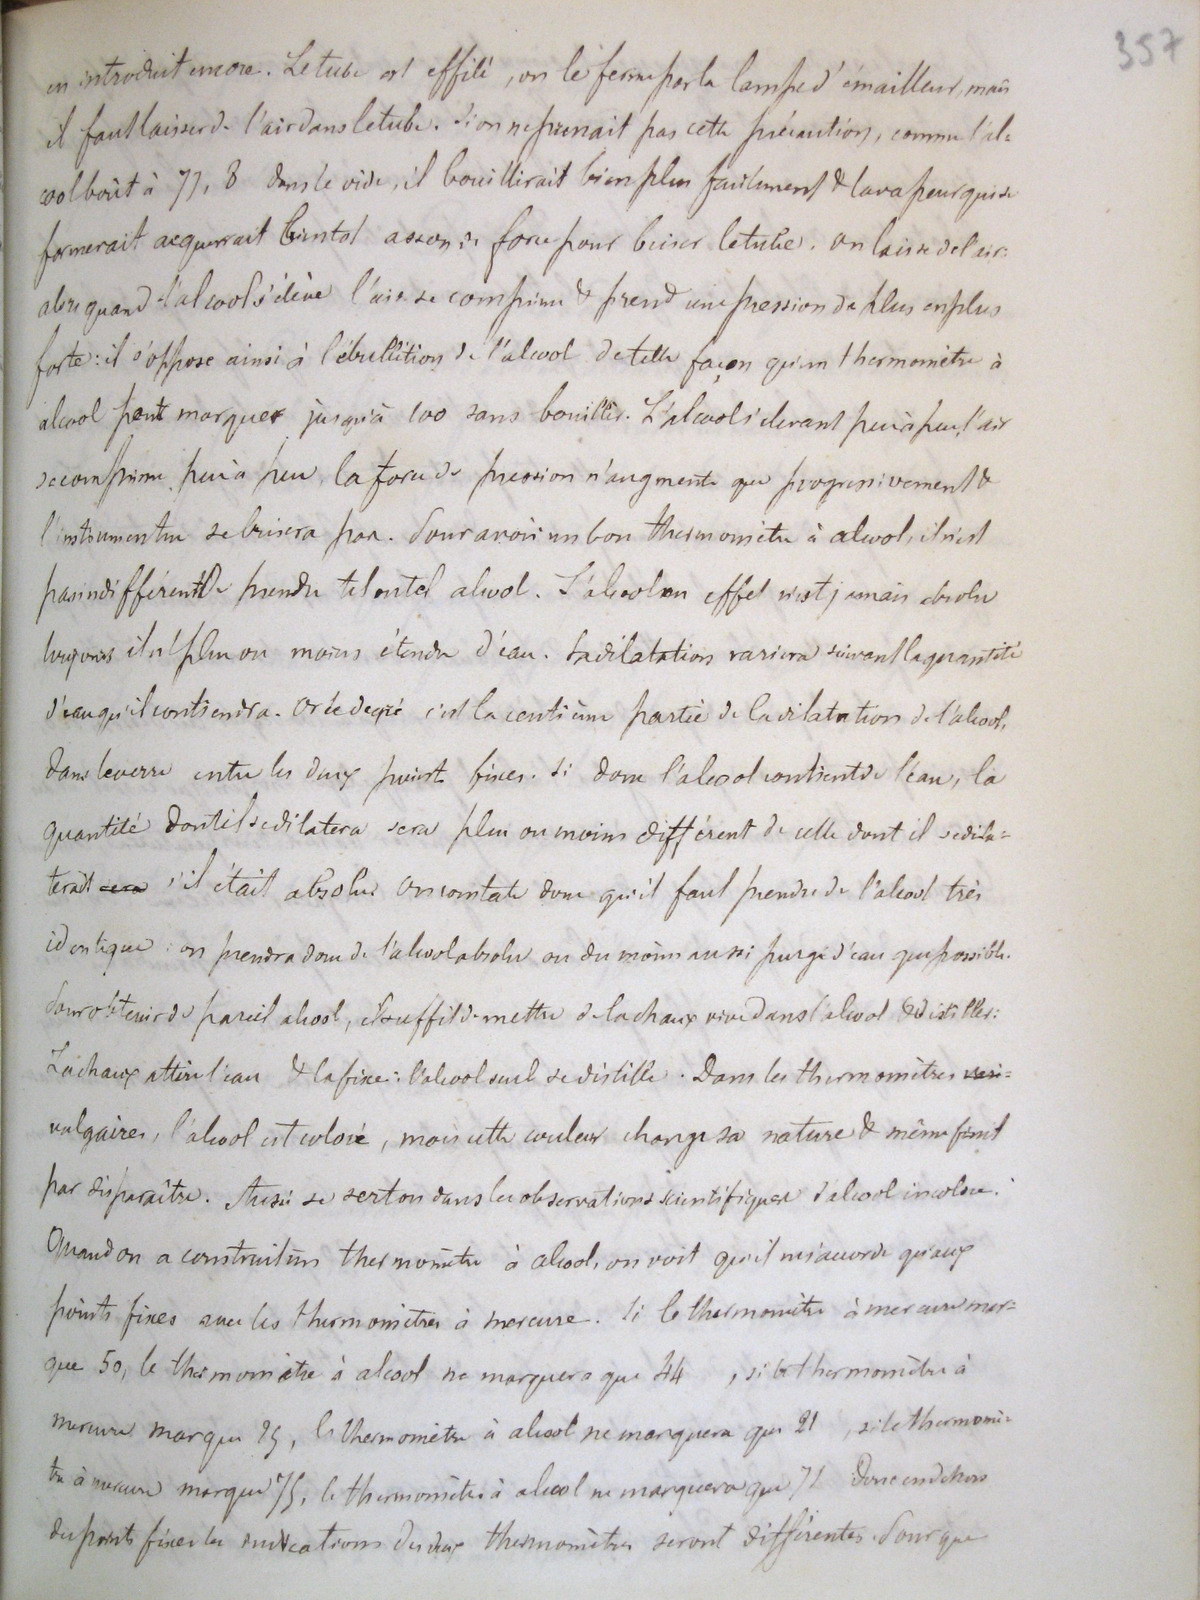 357
en introduit encore. Le tube est effilé, on le ferme par la lampe d'émailleur, mais
il faut laisser de l'air dans le tube. Si on ne prenait pas cette précaution, comme l'al=
cool bout à 77, 8 dans le vide, il bouillirait bien plus facilement & la vapeur qui se
formerait acquerrait bientot assez de force pour briser le tube. On laisse de l'air:
alors quand l'alcool s'élève l'air se comprime & prend une pression de plus en plus
forte: il s'oppose ainsi à l'ébullition de l'alcool de telle façon qu'un thermomètre à
alcool peut marquer jusqu'à 100 sans bouillir. L'alcool s'élevant peu à peu, l'air
se comprime peu à peu, la force de pression n'augmente que progressivement &
l'instrument ne se brisera pas. Pour avoir un bon thermomètre à alcool, il n'est
pas indifférent de prendre tel ou tel alcool. L'alcool en effet n'est jamais absolu
toujours il est plus ou moins étendu d'eau. Sa dilatation variera suivant la quantité
d'eau qu'il contiendra. Or le degré c'est la centième partie de la dilatation de l'alcool,
dans le verre entre les deux points fixes. Si donc l'alcool contient de l'eau, la
quantité dont il se dilatera sera plus ou moins différent de celle dont il se dila=
terait s'il était absolu. On constate donc qu'il faut prendre de l'alcool très
identique: on prendra donc de l'alcool absolu ou du moins aussi purgé d'eau que possible.
Pour obtenir de pareil alcool, il suffit de mettre de la chaux vive dans l'alcool & distiller:
La chaux attire l'eau & la fixe: l'alcool seul se distille. Dans les thermomètres
vulgaires, l'alcool est coloré, mais cette couleur change sa nature & même finit
par disparaître. Aussi se sert on dans les observations scientifiques d'alcool incolore.
Quand on a construit un thermomètre à alcool, on voit qu'il ne s'accorde qu'aux
points fixes avec les thermomètres à mercure. Si le thermomètre à mercure mar=
que 50, le thermomètre à alcool ne marquera que 44, si le thermomètre à
mercure marque 25, le thermomètre à alcool ne marquera que 21, si le thermomè=
tre à mercure marque 75, le thermomètre à alcool ne marquera que 71 Donc en dehors
des points fixes les indications des deux thermomètres seront différentes. Pour que